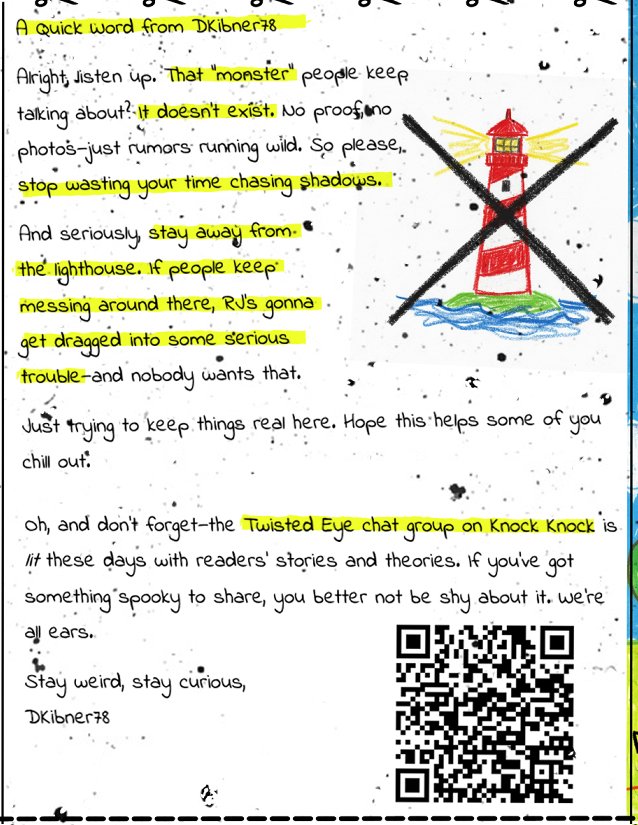 A Quick Word from DKibner78
Alright, listen up. That "monster" people keep
talking about? It doesn't exist. No proof, no
photos–just rumors running wild. So please,
stop wasting your time chasing shadows.
And seriously, stay away from
the lighthouse. If people keep
messing around there, RJ's gonna
get dragged into some serious
trouble–and nobody wants that.
Just trying to keep things real here. Hope this helps some of you
chill out.
Oh, and don't forget–the Twisted Eye chat group on Knock Knock is
lit these days with readers' stories and theories. If you've got
something spooky to share, you better not be shy about it. We're
all ears.
Stay weird, stay curious,
DKibner78